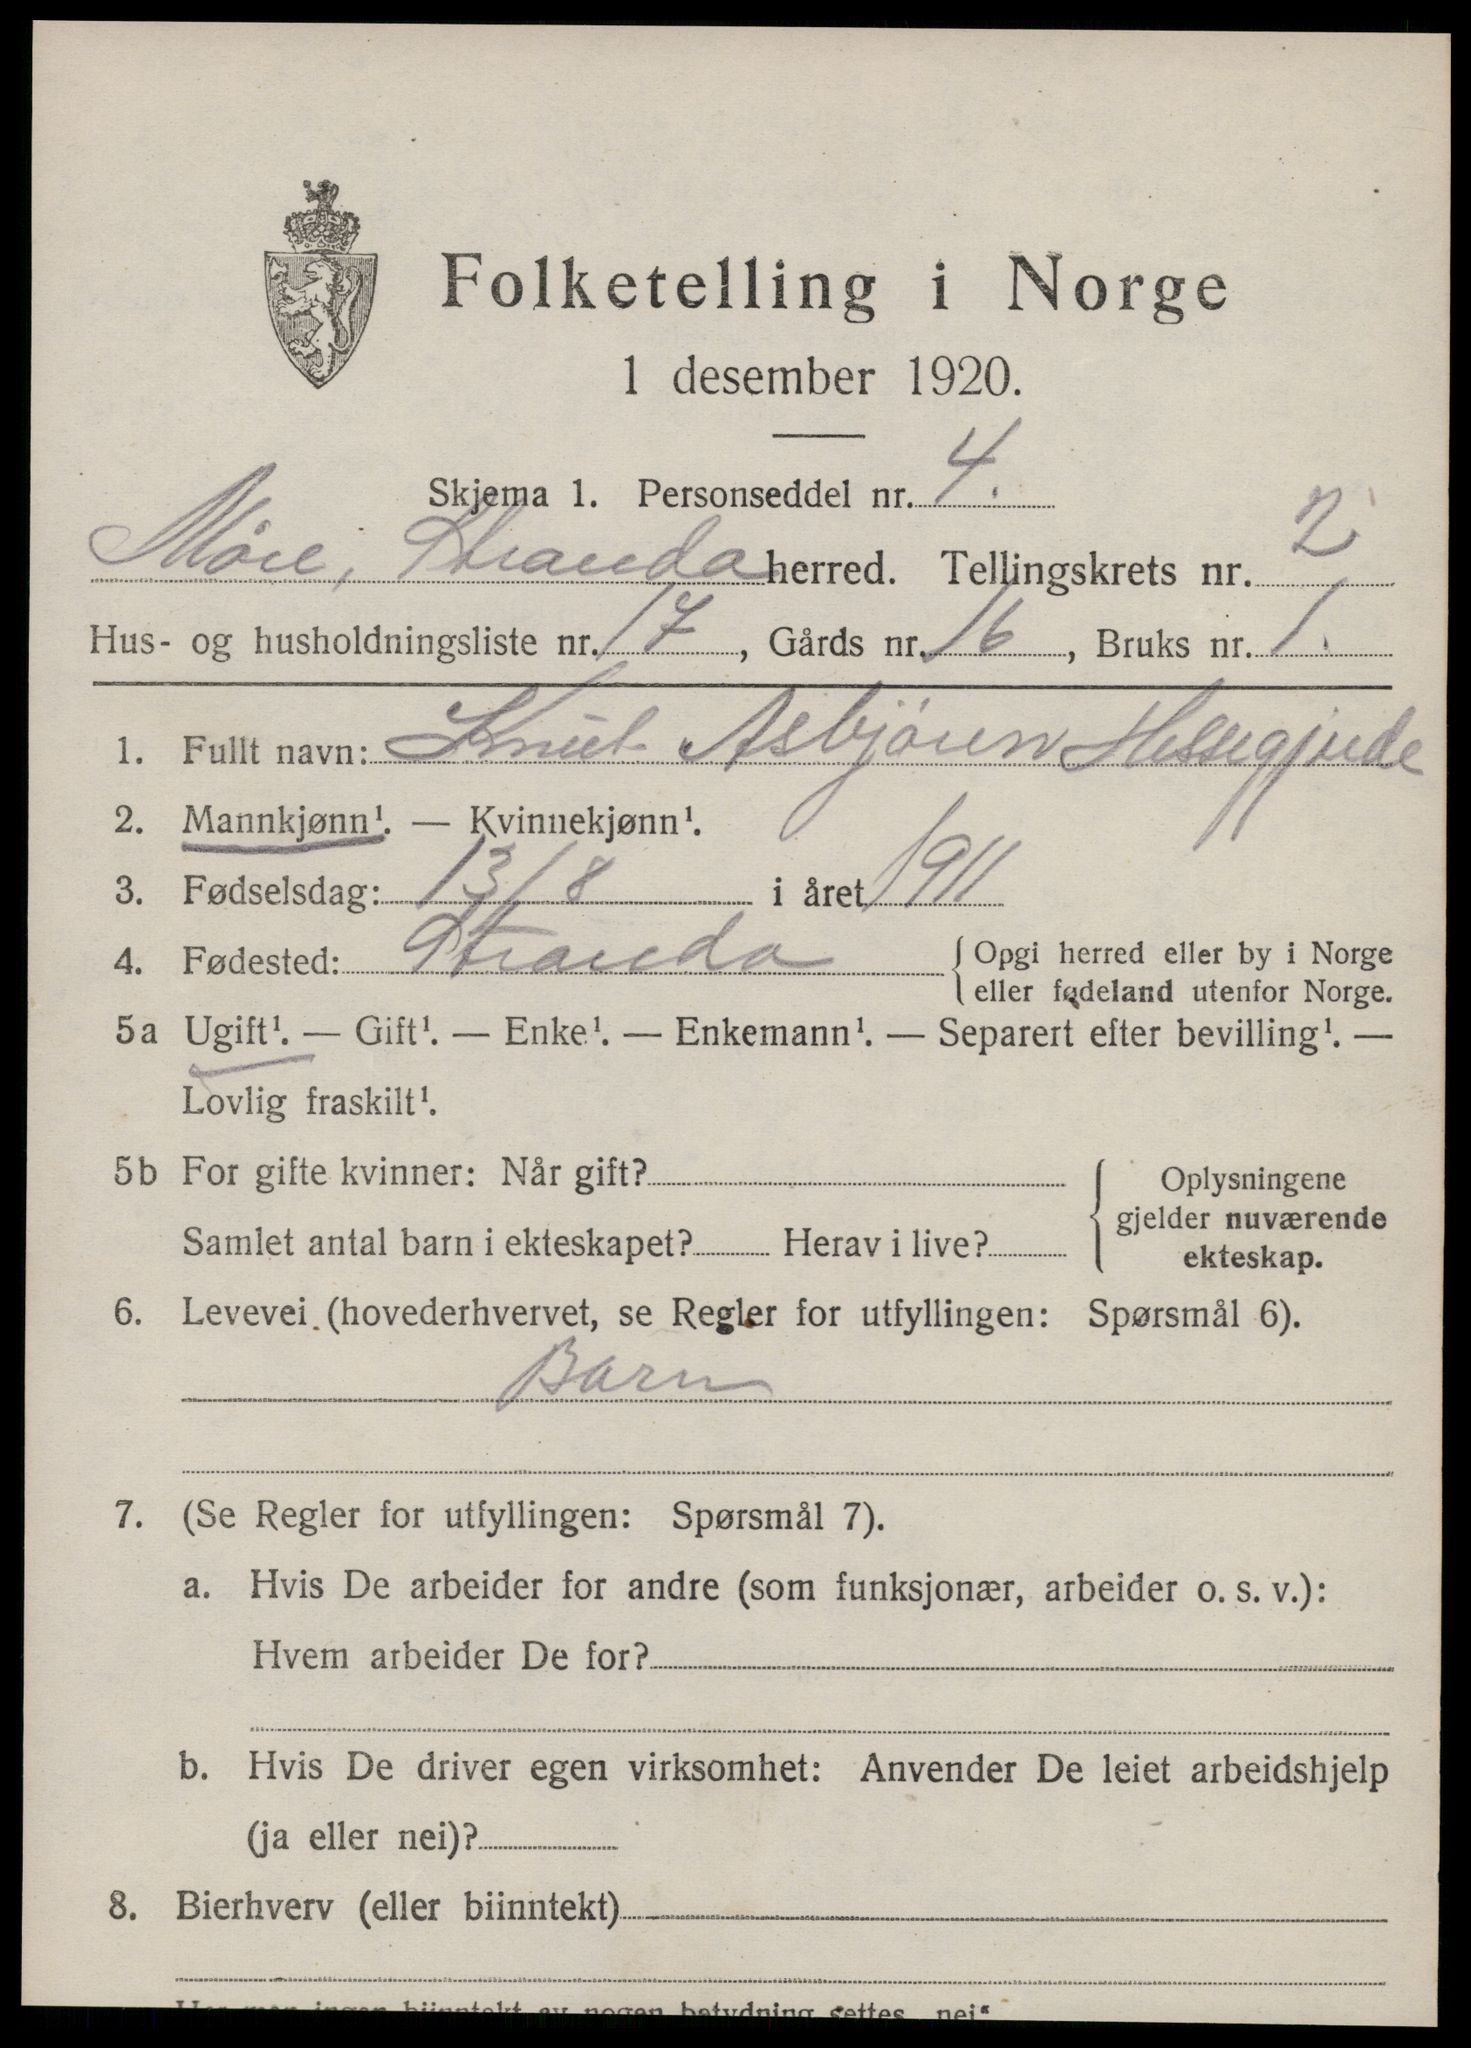 Folketelling i Norge
1 desember 1920.
Skjema 1. Personseddel nr. 4.
Møre, Stranda herred. Tellingskrets nr. 2
Hus- og husholdningsliste nr. 17, Gårds nr. 16, Bruks nr. 1.
1. Fullt navn: Knut Asbjörn Hessegjerde
2. Mannkjønn¹. — Kvinnekjønn¹.
3. Fødselsdag: 13/8 i året 1911
4. Fødested: Stranda { Opgi herred eller by i Norge
eller fødeland utenfor Norge.
5a Ugift¹. — Gift¹. — Enke¹. — Enkemann¹. — Separert efter bevilling¹. —
Lovlig fraskilt¹.
5b For gifte kvinner: Når gift?
Samlet antal barn i ekteskapet? Herav i live?
{ Oplysningene
gjelder nuværende
ekteskap.
6. Levevei (hovederhvervet, se Regler for utfyllingen: Spørsmål 6).
Barn
7. (Se Regler for utfyllingen: Spørsmål 7).
a. Hvis De arbeider for andre (som funksjonær, arbeider o. s. v.):
Hvem arbeider De for?
b. Hvis De driver egen virksomhet: Anvender De leiet arbeidshjelp
(ja eller nei)?
8. Bierhverv (eller biinntekt)
Har man ingen biinntekt av nogen betydning settes „nei“